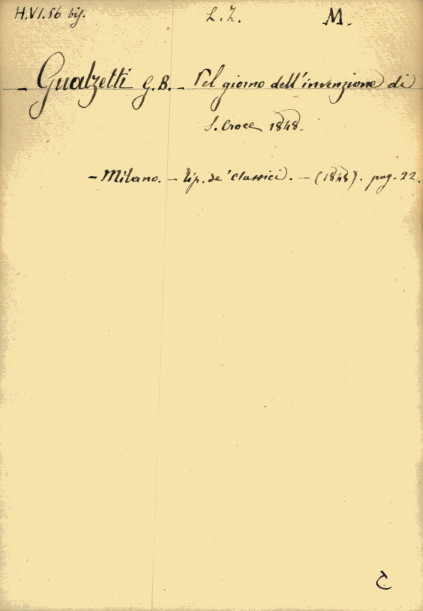 H.VI.56 bis. L.Z. M.
- Gualzetti G.B. - Pel giorno dell'invenzione di
S. Croce 1848.
- Milano. - tip. de' Classici. - (1848). pag. 22.